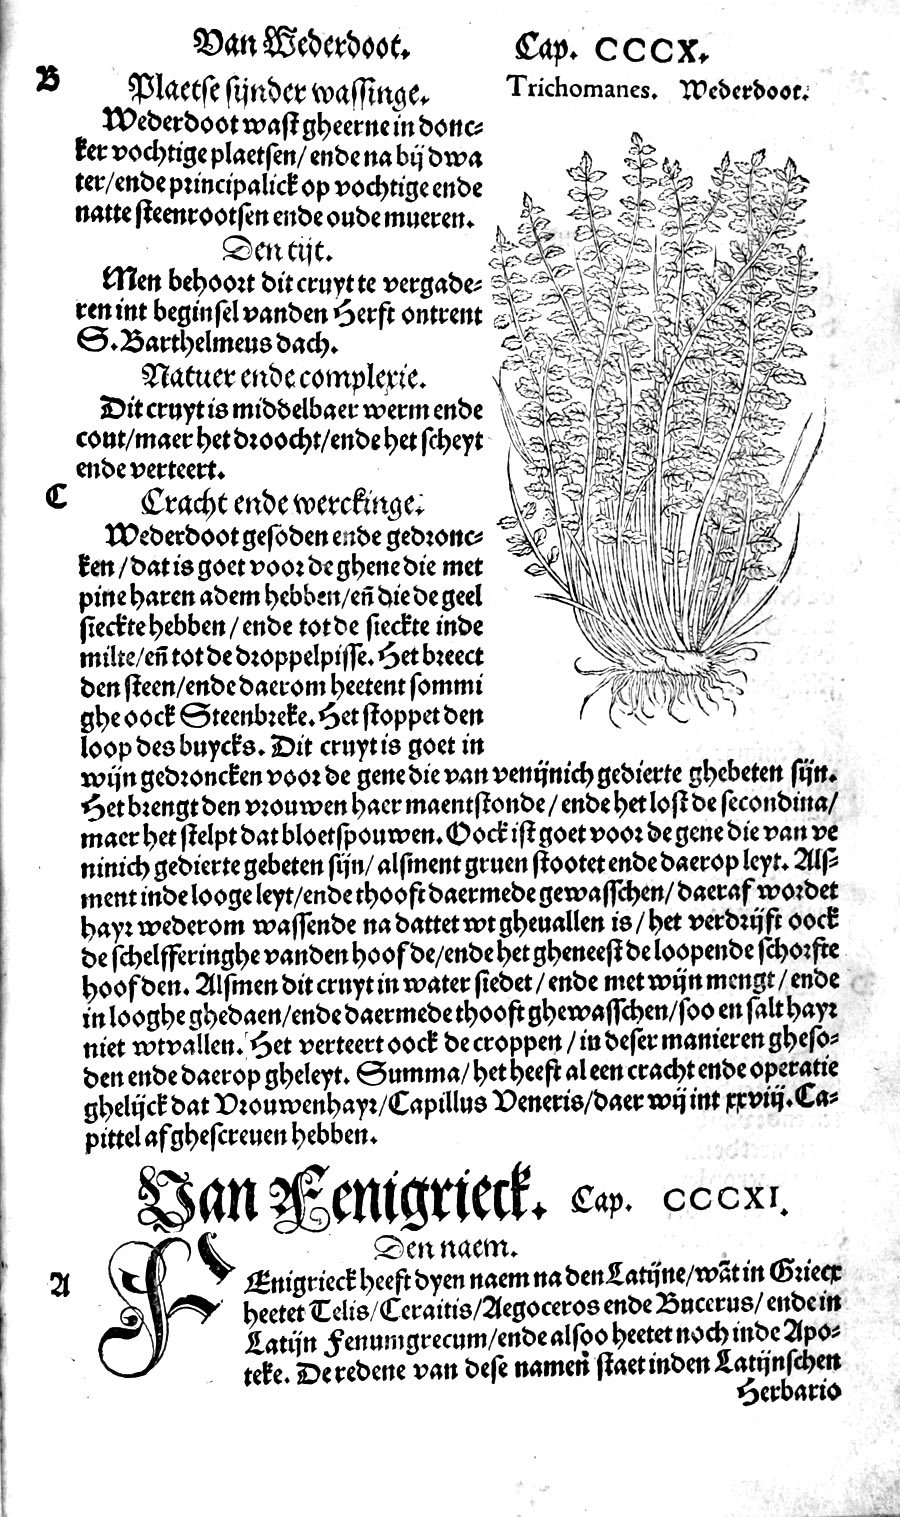 Van Wederdoot.
Cap. CCCX.
B
Plaetse sijnder wassinge.
Trichomanes. Wederdoot.
Wederdoot wast gheerne in donc-
ker vochtige plaetsen/ ende na bij dwa
ter/ende principalick op vochtige ende
natte steenrootsen ende oude mueren.
Den tijt.
Men behoort dit cruyt te vergade-
ren int beginsel vanden Herfst ontrent
S. Barthelmeus dach.
Natuer ende complexie.
Dit cruyt is middelbaer werm ende
cout/maer het droocht/ende het scheyt
ende verteert.
C
Cracht ende werckinge.
Wederdoot gesoden ende gedronc-
ken/dat is goet voor de ghene die met
pine haren adem hebben/eñ die de geel
sieckte hebben/ ende tot de sieckte inde
milte/eñ tot de droppelpisse. Het breect
den steen/ende daerom heetent sommi
ghe oock Steenbreke. Het stoppet den
loop des buycks. Dit cruyt is goet in
wijn gedroncken voor de gene die van venijnich gedierte ghebeten sijn.
Het brengt den vrouwen haer maentstonde/ ende het lost de secondina/
maer het stelpt dat bloetspouwen. Oock ist goet voor de gene die van ve
ninich gedierte gebeten sijn/ alsment gruen stootet ende daerop leyt. Als-
ment inde looge leyt/ende thooft daermede gewasschen/ daeraf wordet
hayr wederom wassende na dattet wt gheuallen is/ het verdrijft oock
de schelfferinghe vanden hoofde/ende het gheneest de loopende schorfte
hoofden. Alsmen dit cruyt in water siedet/ ende met wijn mengt/ ende
in looghe ghedaen/ende daermede thooft ghewasschen/soo en salt hayr
niet wtvallen. Het verteert oock de croppen/in deser manieren gheso-
den ende daerop gheleyt. Summa/ het heeft al een cracht ende operatie
ghelijck dat Vrouwenhayr/Capillus Veneris/daer wij int xxviij. Ca-
pittel af ghescreuen hebben.
Van Fenigrieck. Cap. CCCXI.
Den naem.
A
FEnigrieck heeft dyen naem na den Latijne/wãt in Griecx
heetet Telis/Ceraitis/Aegoceros ende Bucerus/ ende in
Latijn Fenumgrecum/ende alsoo heetet noch inde Apo-
teke. De redene van dese namen staet inden Latijnschen
Herbario